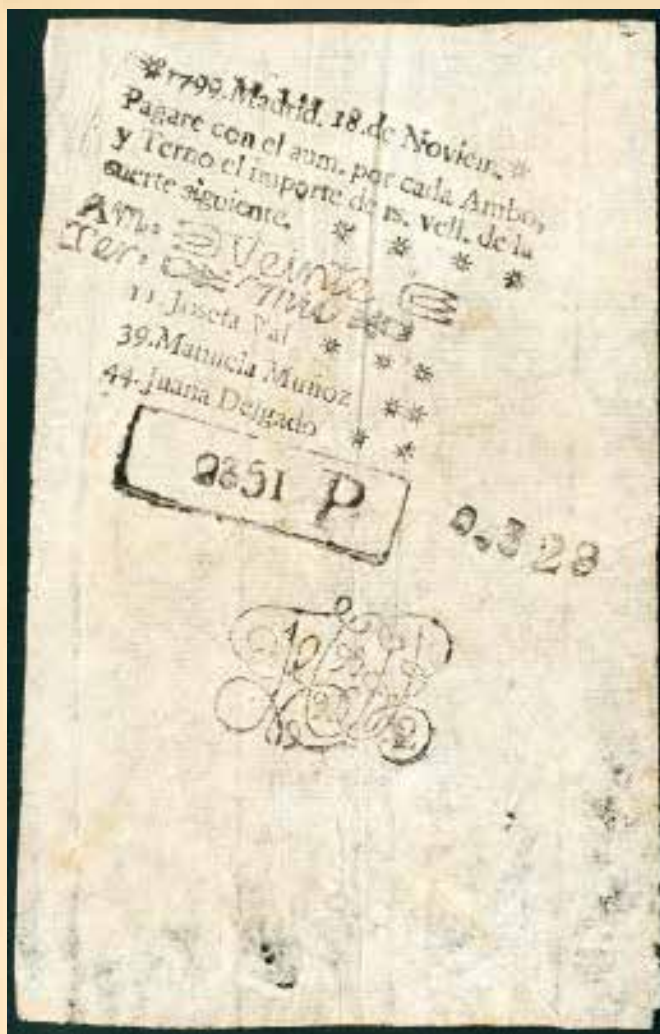 1799. Madrid. 18. de Noviem.
Pagare con el aum. por cada Ambo,
y Terno el importe de rs. vell. de la
suerte siguiente.
Am: Veinte
Ter: mil
11. Josefa
39. Manuela Muñoz
44. Juana Delgado
2351 P
2.328